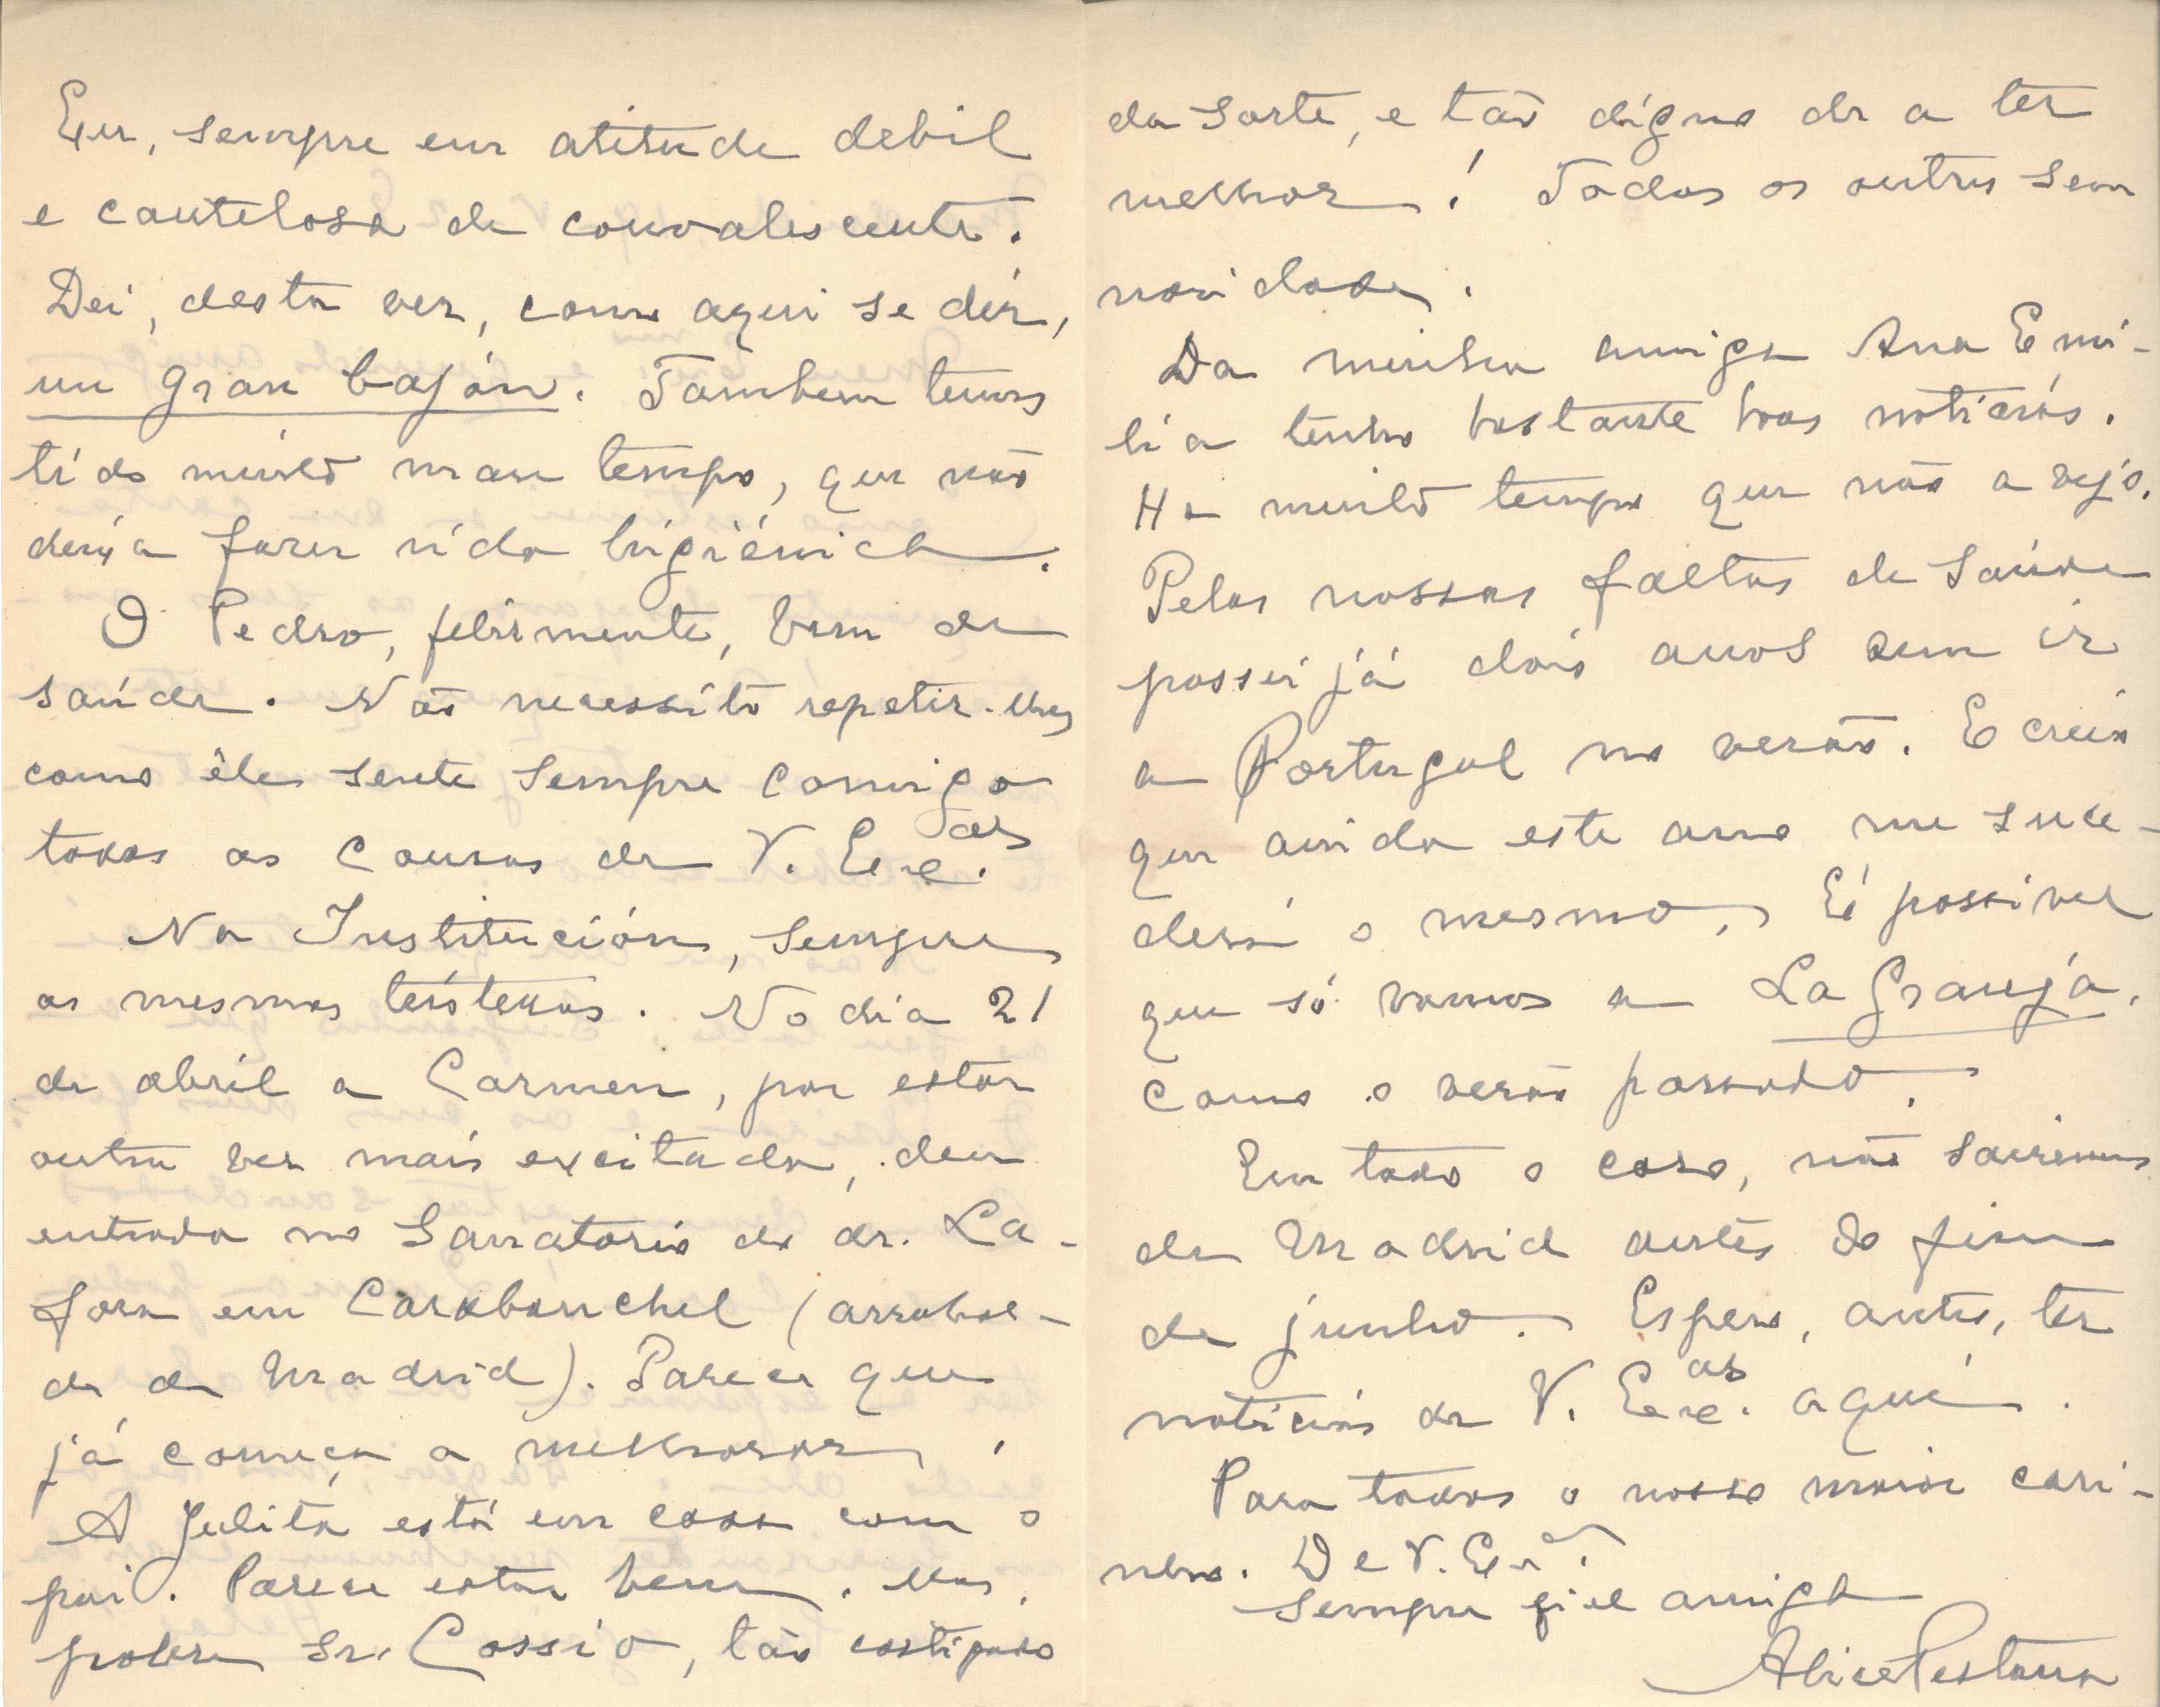 Eu, sempre em atitude debil
e cautelosa de convalescente.
Dei, desta vez, como aqui se diz,
un gran bajón. Tambem temos
tido muito mau tempo, que não
deixa fazer vida higiénica.
O Pedro, felizmente, bem de
saúde. Não necessito repetir-lhes
como êle sente sempre comigo
todas as cousas de V. Exc.as
Na Institución, sempre
as mesmas tristezas. No dia 21
de abril a Carmen, por estar
outra vez mais excitada, deu
entrada no Sanatorio do dr. La-
fora em Carabanchel (arrabal-
de de Madrid). Parece que
já começa a melhorar.
A Julita está em casa com o
pai. Parece estar bem. Mas,
pobre Sr. Cossio, tão castigado
da sorte, e tão digno de a ter
melhor! Todos os outros sem
novidade.
Da minha amiga Ana Emi-
lia tenho bastante boas noticias.
Ha muito tempo que não a vejo.
Pelas nossas faltas de saúde
passei já dois anos sem ir
a Portugal no verão. E creio
que ainda este ano me suce-
derá o mesmo. É possivel
que só vamos a La Granja,
como o verão passado.
Em todo o caso, não sairemos
de Madrid antes do fim
de junho. Espero, antes, ter
noticias de V. Exc.as aqui.
Para todos o nosso maior cari-
nho. De V. Ex.a
sempre fiel amiga
Alice Pestana